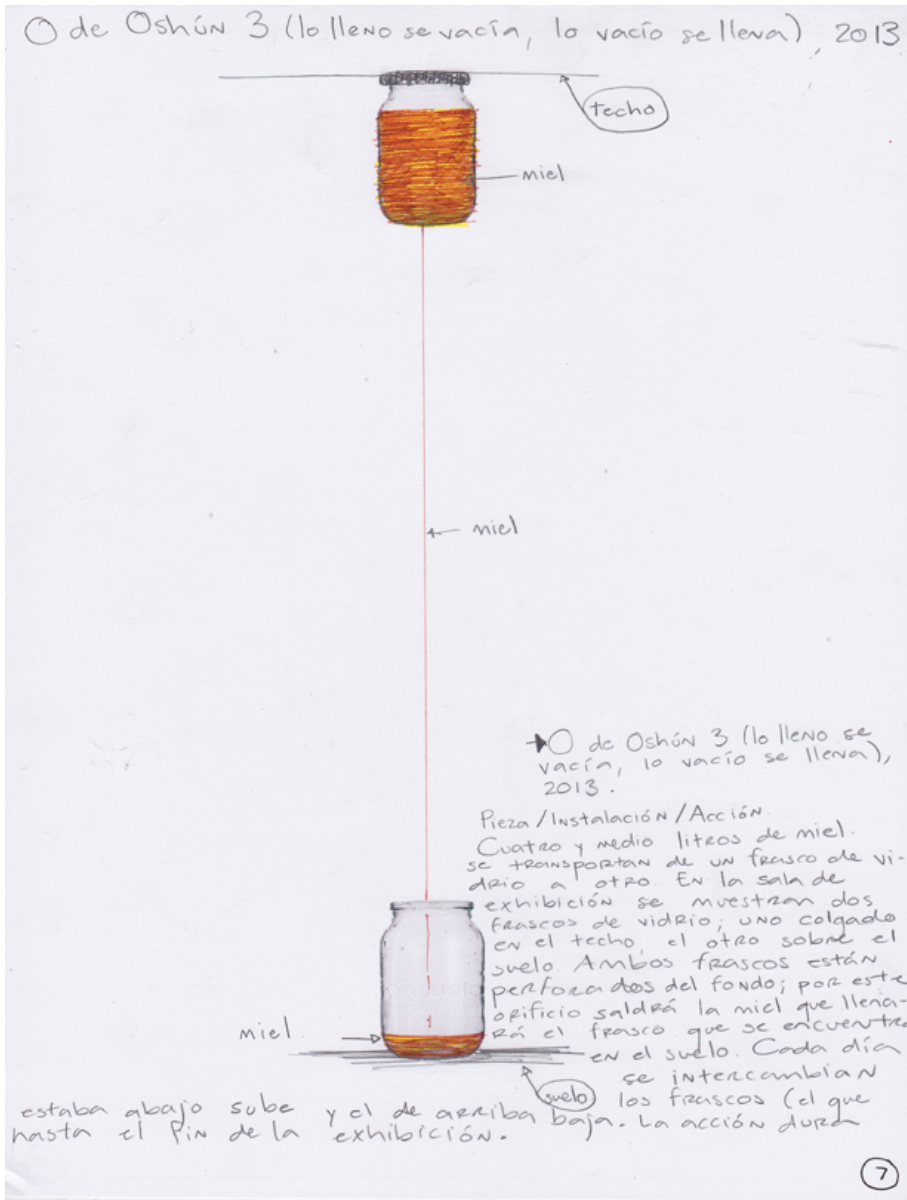 O de Oshún 3 (lo lleno se vacía, lo vacío se llena), 2013
techo
miel
miel
O de Oshún 3 (lo lleno se
vacía, lo vacío se llena),
2013.
Pieza/Instalación/Acción.
Cuatro y medio litros de miel.
se transportan de un frasco de vi-
drio a otro. En la sala de
exhibición se muestran dos
frascos de vidrio; uno colgado
en el techo, el otro sobre el
suelo. Ambos frascos están
perforados del fondo; por este
orificio saldrá la miel que llena-
rá el frasco que se encuentra
en el suelo. Cada día
se intercambian
los frascos (el que
estaba abajo sube y el de arriba baja. La acción dura
hasta el fin de la exhibición.
miel
suelo
7